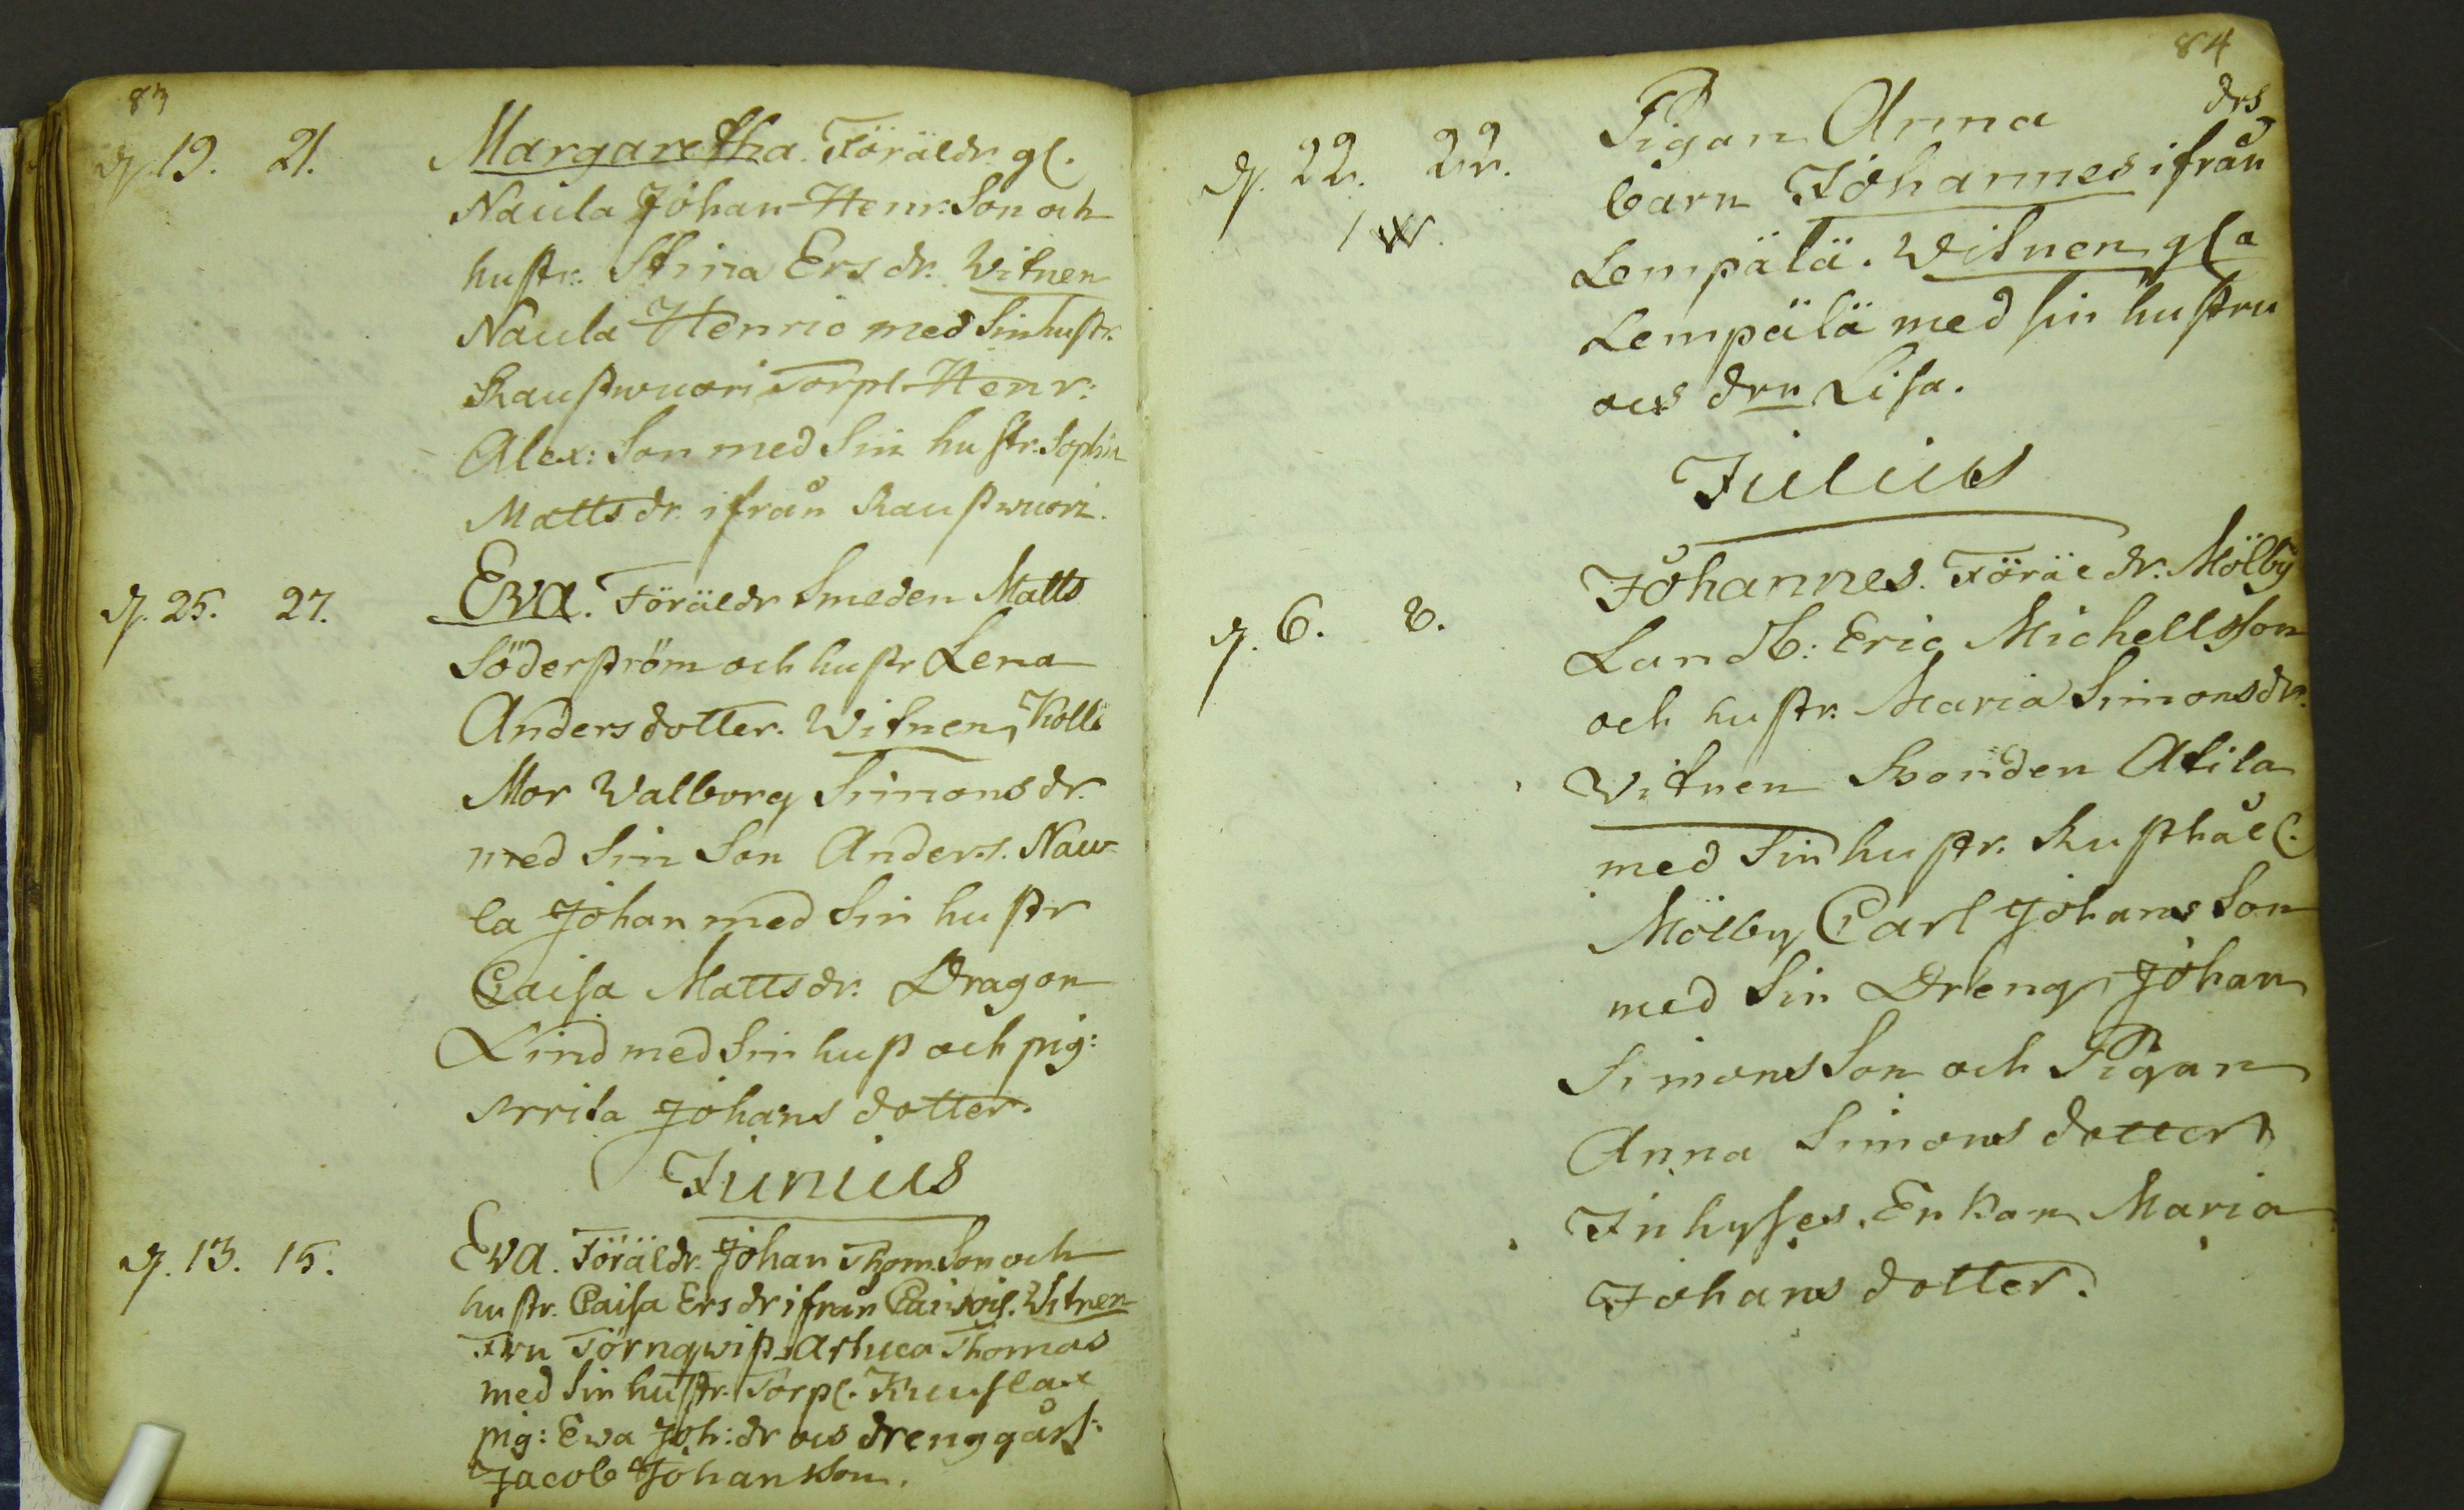 83
d. 19. 21. Margaretha. Föräldr. gl.
Naula Johan Henr: Son och
hustr. Stina Ersdr. Witnen
Naula Henric med Sin hustr.
Raustwuori Torpl. Henr:
Alex: Son med Sin hustr. Sophia
Mattsdr. ifrån Raustwuori.
d. 25. 27. Eva. Föräldr Smeden Matts
Söderström och hustr Lena
Andersdotter. Witnen,
Mor Walborg Simonsdr.
med Sin Son Anders. Nau-
la Johan med Sin hustr
Caisa Mattsdr. Dragon
Lind med Sin hust och pig:
Johans dotter.
Junius
d. 13. 15. Eva. Föräldr. Johan Thom. Son och
hustr. Caisa Ersdr ifrån Witnen
Fru Törnqwist Thomas
med Sin hustr. Torpl.
pig: Ewa Joh: dr ocs
Jacob Johansson.
84
d. 22. 22. Pigan Anna drs
barn Johannes ifrån
Lempälä. Witnen gla
Lempälä med sin hustru
ocs drn Lisa.
Julius
d. 6. 8. Johannes. Föräldr. Mölby
Landb: Eric Michellsson
och hustr. Maria Simonsdr.
Witnen Bonden Atila
med Sin hustr. Rusthåll.
Mölby Carl Johans Son
med Sin Dreng Johan
Simons Son och Pigan
Anna Simons dotter
Inhyses. Enkan Maria
Johans dotter.